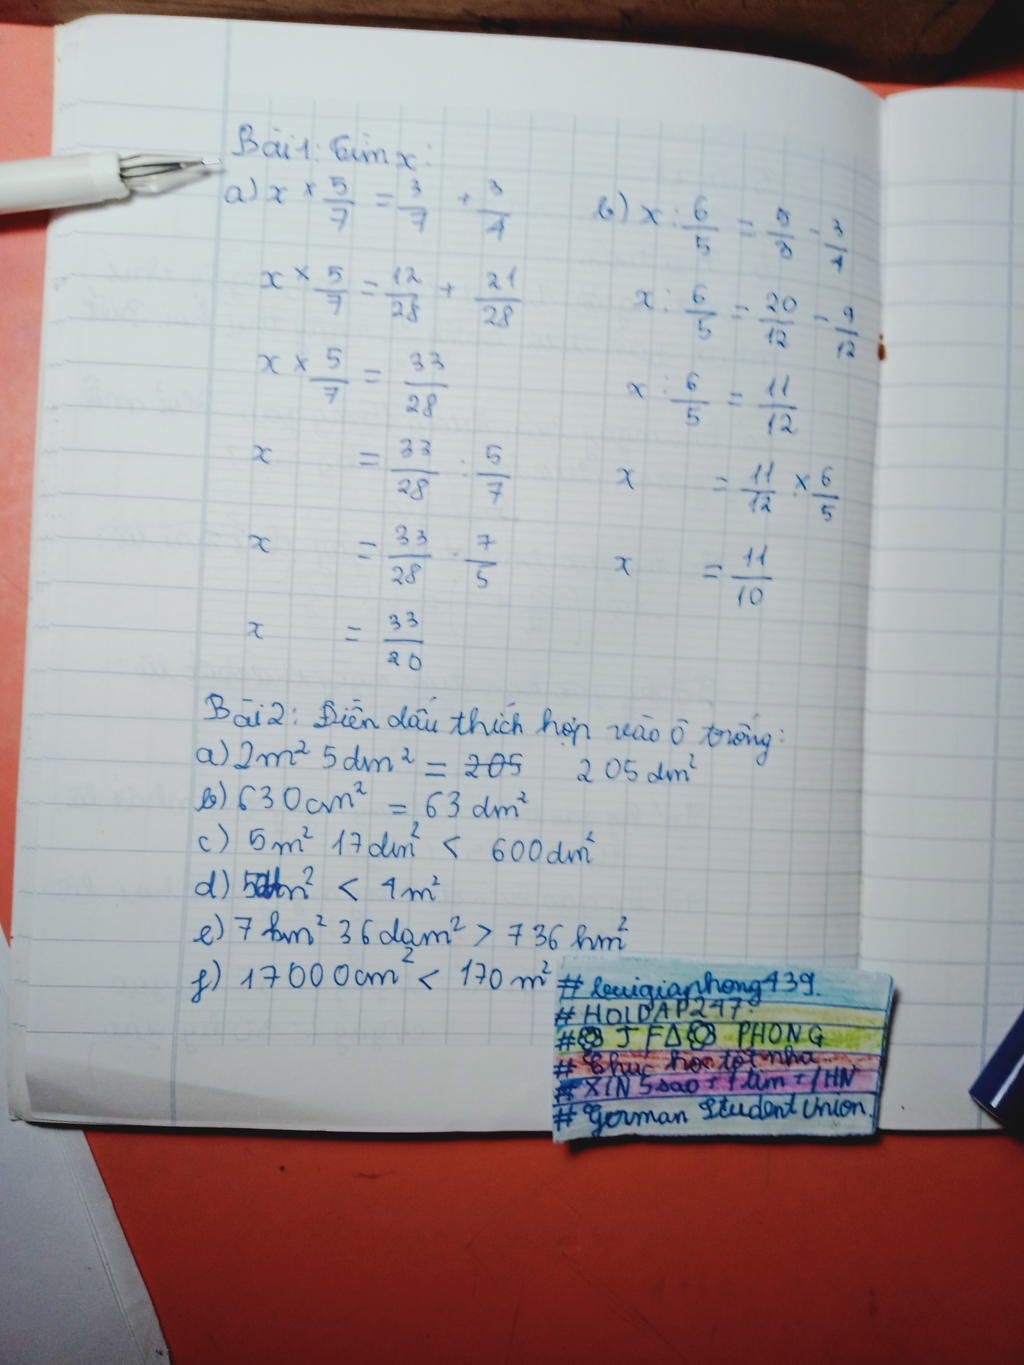 Bài 1: Tìm x:
a) x × 5/7 = 3/7 + 3/4
x × 5/7 = 12/28 + 21/28
x × 5/7 = 33/28
x = 33/28 : 5/7
x = 33/28 . 7/5
x = 33/20
b) x : 6/5 = 5/3 - 3/4
x : 6/5 = 20/12 - 9/12
x : 6/5 = 11/12
x = 11/12 × 6/5
x = 11/10
Bài 2: Điền dấu thích hợp vào ô trống:
a) 2m² 5dm² = 205 205dm²
b) 630cm² = 63dm²
c) 5m² 17dm² < 600dm²
d) < 4m²
e) 7km² 36dam² > 736hm²
f) 17000cm² < 170m²
#buigiaphong439.
#HOIDAP247.
# PHONG
#Chúc học tốt nha
#XIN 5 sao + 1 tim + 1HN
#German Student Union.